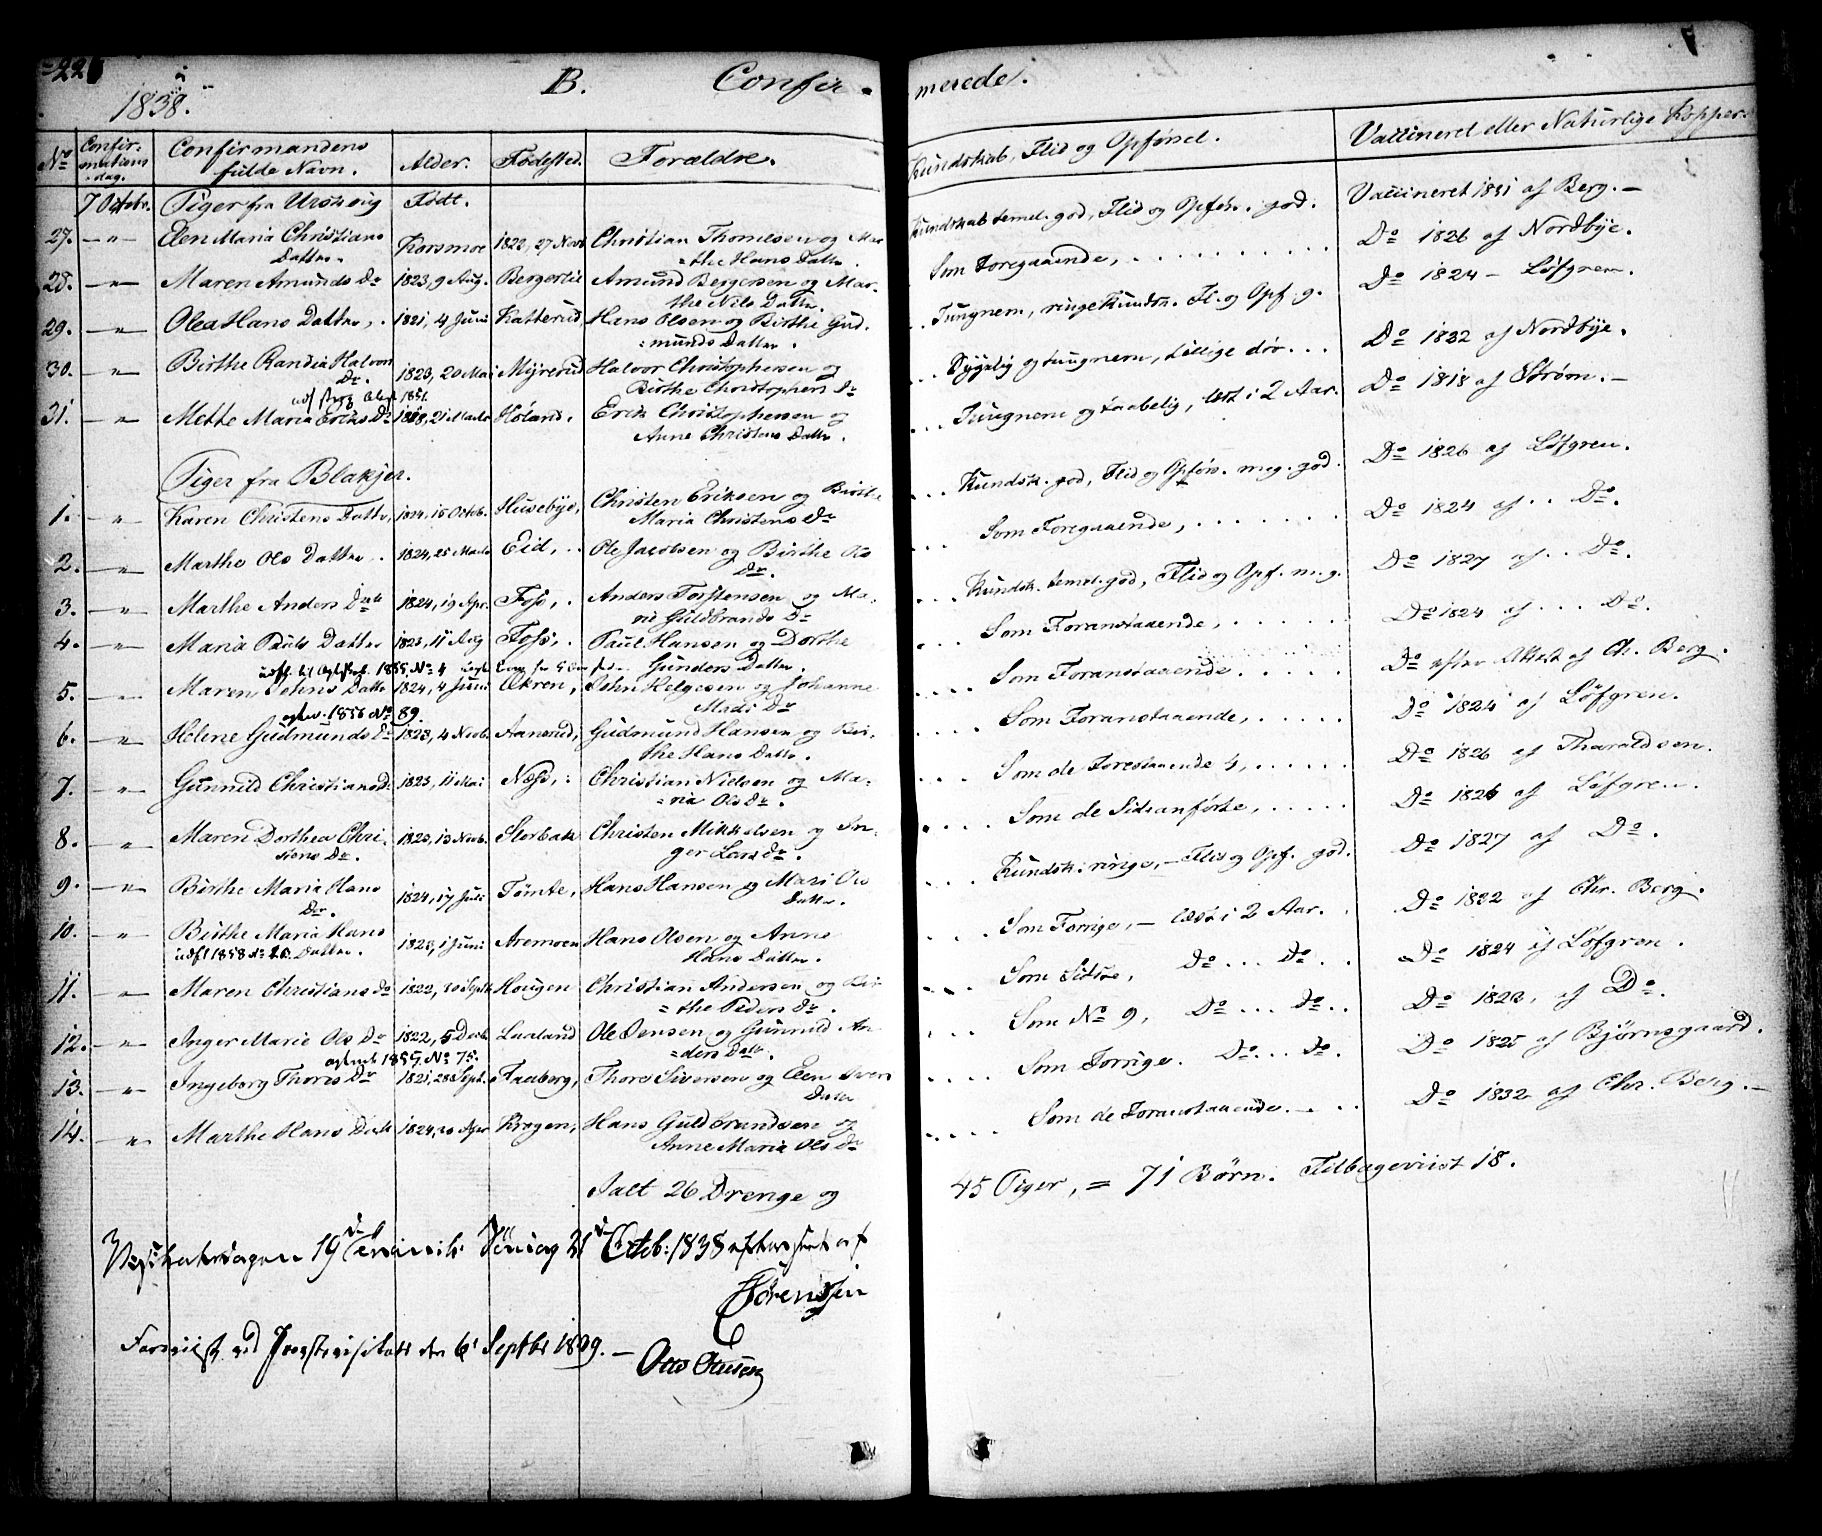 1838.
B. Confir-
merede.
No
Confir-
mations
dag.
Confirmandens
fulde Navn.
Alder.
Fødested.
Forældre.
Kundskab, Flid og Opførsel.
Vaccineret eller Naturlige Kopper.
7 Octobr. Piger fra Urskoug Født.
27. -"- Elen Maria Christians Korsmoe 1822, 27 Novb Christian Thomesen og Mar
Datter. =the Hans Datter.
Kundskab temel. god, Flid og Opfør. god. Vaccineret 1831 af Berg.-
28. -"- Maren Amunds Dr 1823, 9 Aug. Bergerlie Amund Bergersen og Mar-
the Nils Datter.
Som Foregaaende, Do 1826 af Nordbye.
29. " Olea Hans Datter, 1821, 4 Juni Katterud, Hans Olsen og Birthe Gud.
=munds Datter.
Tungnem, ringe Kundsk. Fl. og Opf. g. Do 1824 - Løfgren.
30. -"- Birthe Randia Halvors
Dr. 1823, 20 Mai Myrerud Halvor Christophersen og
Birthe Christophers Dr
Sygelig og tungnem, Do 1832 af Nordbye.
1851.
31. -"- Mette Maria Eriks Dr 1818, 21 Marts Høland. Erik Christophersen og
Anne Christens Datter.
Tungnem og taabelig, læst i 2 Aar. Do 1818 af Strøm.-
Piger fra Blakjer.
1. -"- Karen Christens Datter, 1824, 15 Octob. Husebye, Christen Eriksen og Birthe
Maria Christens Dr
Kundsk. god, Flid og Opfør. meg. god. Do 1826 af Løfgren.
2. -"- Marthe Ols Datter. 1824, 25 Marts Eid, Ole Jacobsen og Birthe Ols
Dr.
Som Foregaaende, Do 1824 af Do.
3. -"- Marthe Anders Datr 1824, 19 Apr. Foss, Anders Torstensen og Ma-
rie Guldbrands Dr
Kundsk. temel. god, Flid og Opf. m. g. Do 1827 af Do.
4. -"- Maria Pauls Datter 1823, 11 Aug Foss, Paul Hansen og Dorthe
Gunders Datter.
Som Foranstaaende, Do 1824 af Do.
1855 No 4
5. -"- Maren Johns Datter 1824, 4 Juni Økren, John Helgesen og Johanne
Mads Dr
Som Foranstaaende. Do efter Attest af Ch. Berg.
1856 No 89.
6. -"- Helene Gudmunds Dr 1823, 4 Novb. Aanerud, Gudmund Hansen og Bir-
the Hans Datter.
Som Foranstaaende, Do 1824 af Løfgren.
7. -"- Gunnild Christians Dr 1823, 11 Mai Næss, Christian Nielsen og Ma-
=ria Ols Dr.
Som de Forestaaende 4, Do 1826 af Tharaldsen.
8. -"- Maren Dorthea Chri-
stens Dr. 1823, 13 Novb. Storbak Christen Mikkelsen og In-
ger Lars Dr.
Som de Sidsanførte, Do 1826 af Løfgren.
9. -"- Birthe Maria Hans
Dr. 1824, 17 Juli Tønte, Hans Hansen og Mari Ols
Datter.
Kundsk. ringe, - Flid og Opf. god. Do 1827 af Do.
10. -"- Birthe Maria Hans
udfl 1858 Datter. 1823, 1 Juni Aremoen Hans Olsen og Anne
Hans Datter.
Som Forrige, - læst i 2 Aar. Do 1822 af Chr. Berg.
11. -"- Maren Christians Dr 1822, Septb Hougen Christian Andersen og Bir
=the Peders Dr.
Som Sidste, Do Do Do 1824 af Løfgren.
12. -"- Inger Marie Ols Dr 1822, 5 Decb. Lueland Ole Jensen og Gunnild An-
=ders Datr.
Som No 9, Do Do. Do 1822, af Do.
No 75.
13. -"- Ingeborg Thores Dr 1821, 28 Sept. Faaberg, Thore Siversen og Elen Ivers
Datter
Som Forrige. Do Do. Do 1825 af Bjørnsgaard.
14. -"- Marthe Hans Datr 1824, 20 Apr Krogen, Hans Guldbrandsen og
Anne Maria Ols Dr
Som de Foranstaaende. Do 1832 af Chr. Berg.-
Ialt 26 Drenge og
45 Piger, = 71 Børn. Tilbageviist 18.
19de Søndag 21de Octb: 1838 af
Sørenssen
Foreviist ved Provstevisitats den 6t Septbr 1839.-
Otto